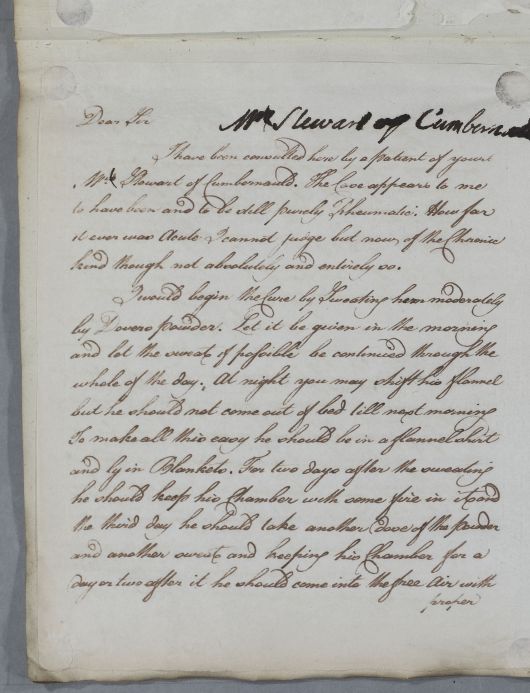 Dear Sir
Mr Stewart of Cumbern
I have been consulted here by a patient of yours
Mr. Stewart of Cumbernauld. The Case appears to me
to have been and to be still purely Rheumatic. How far
it ever was Acute I cannot judge but now of the Chronic
kind though not absolutely and entirely so.
I would begin the Cure by Sweating him moderately
by Dovers powder. Let it be given in the morning
and let the sweat if possible be continued through the
whole of the day. At night you may shift his flannel
but he should not come out of bed till next morning
To make all this easy he should be in a flannel shirt
and ly in Blankets. For two days after the sweating
he should keep his Chamber with some fire in it and
the third day he should take another dose of the powder
and another sweat and keeping his Chamber for a
day or two after it he should come into the free Air with
proper